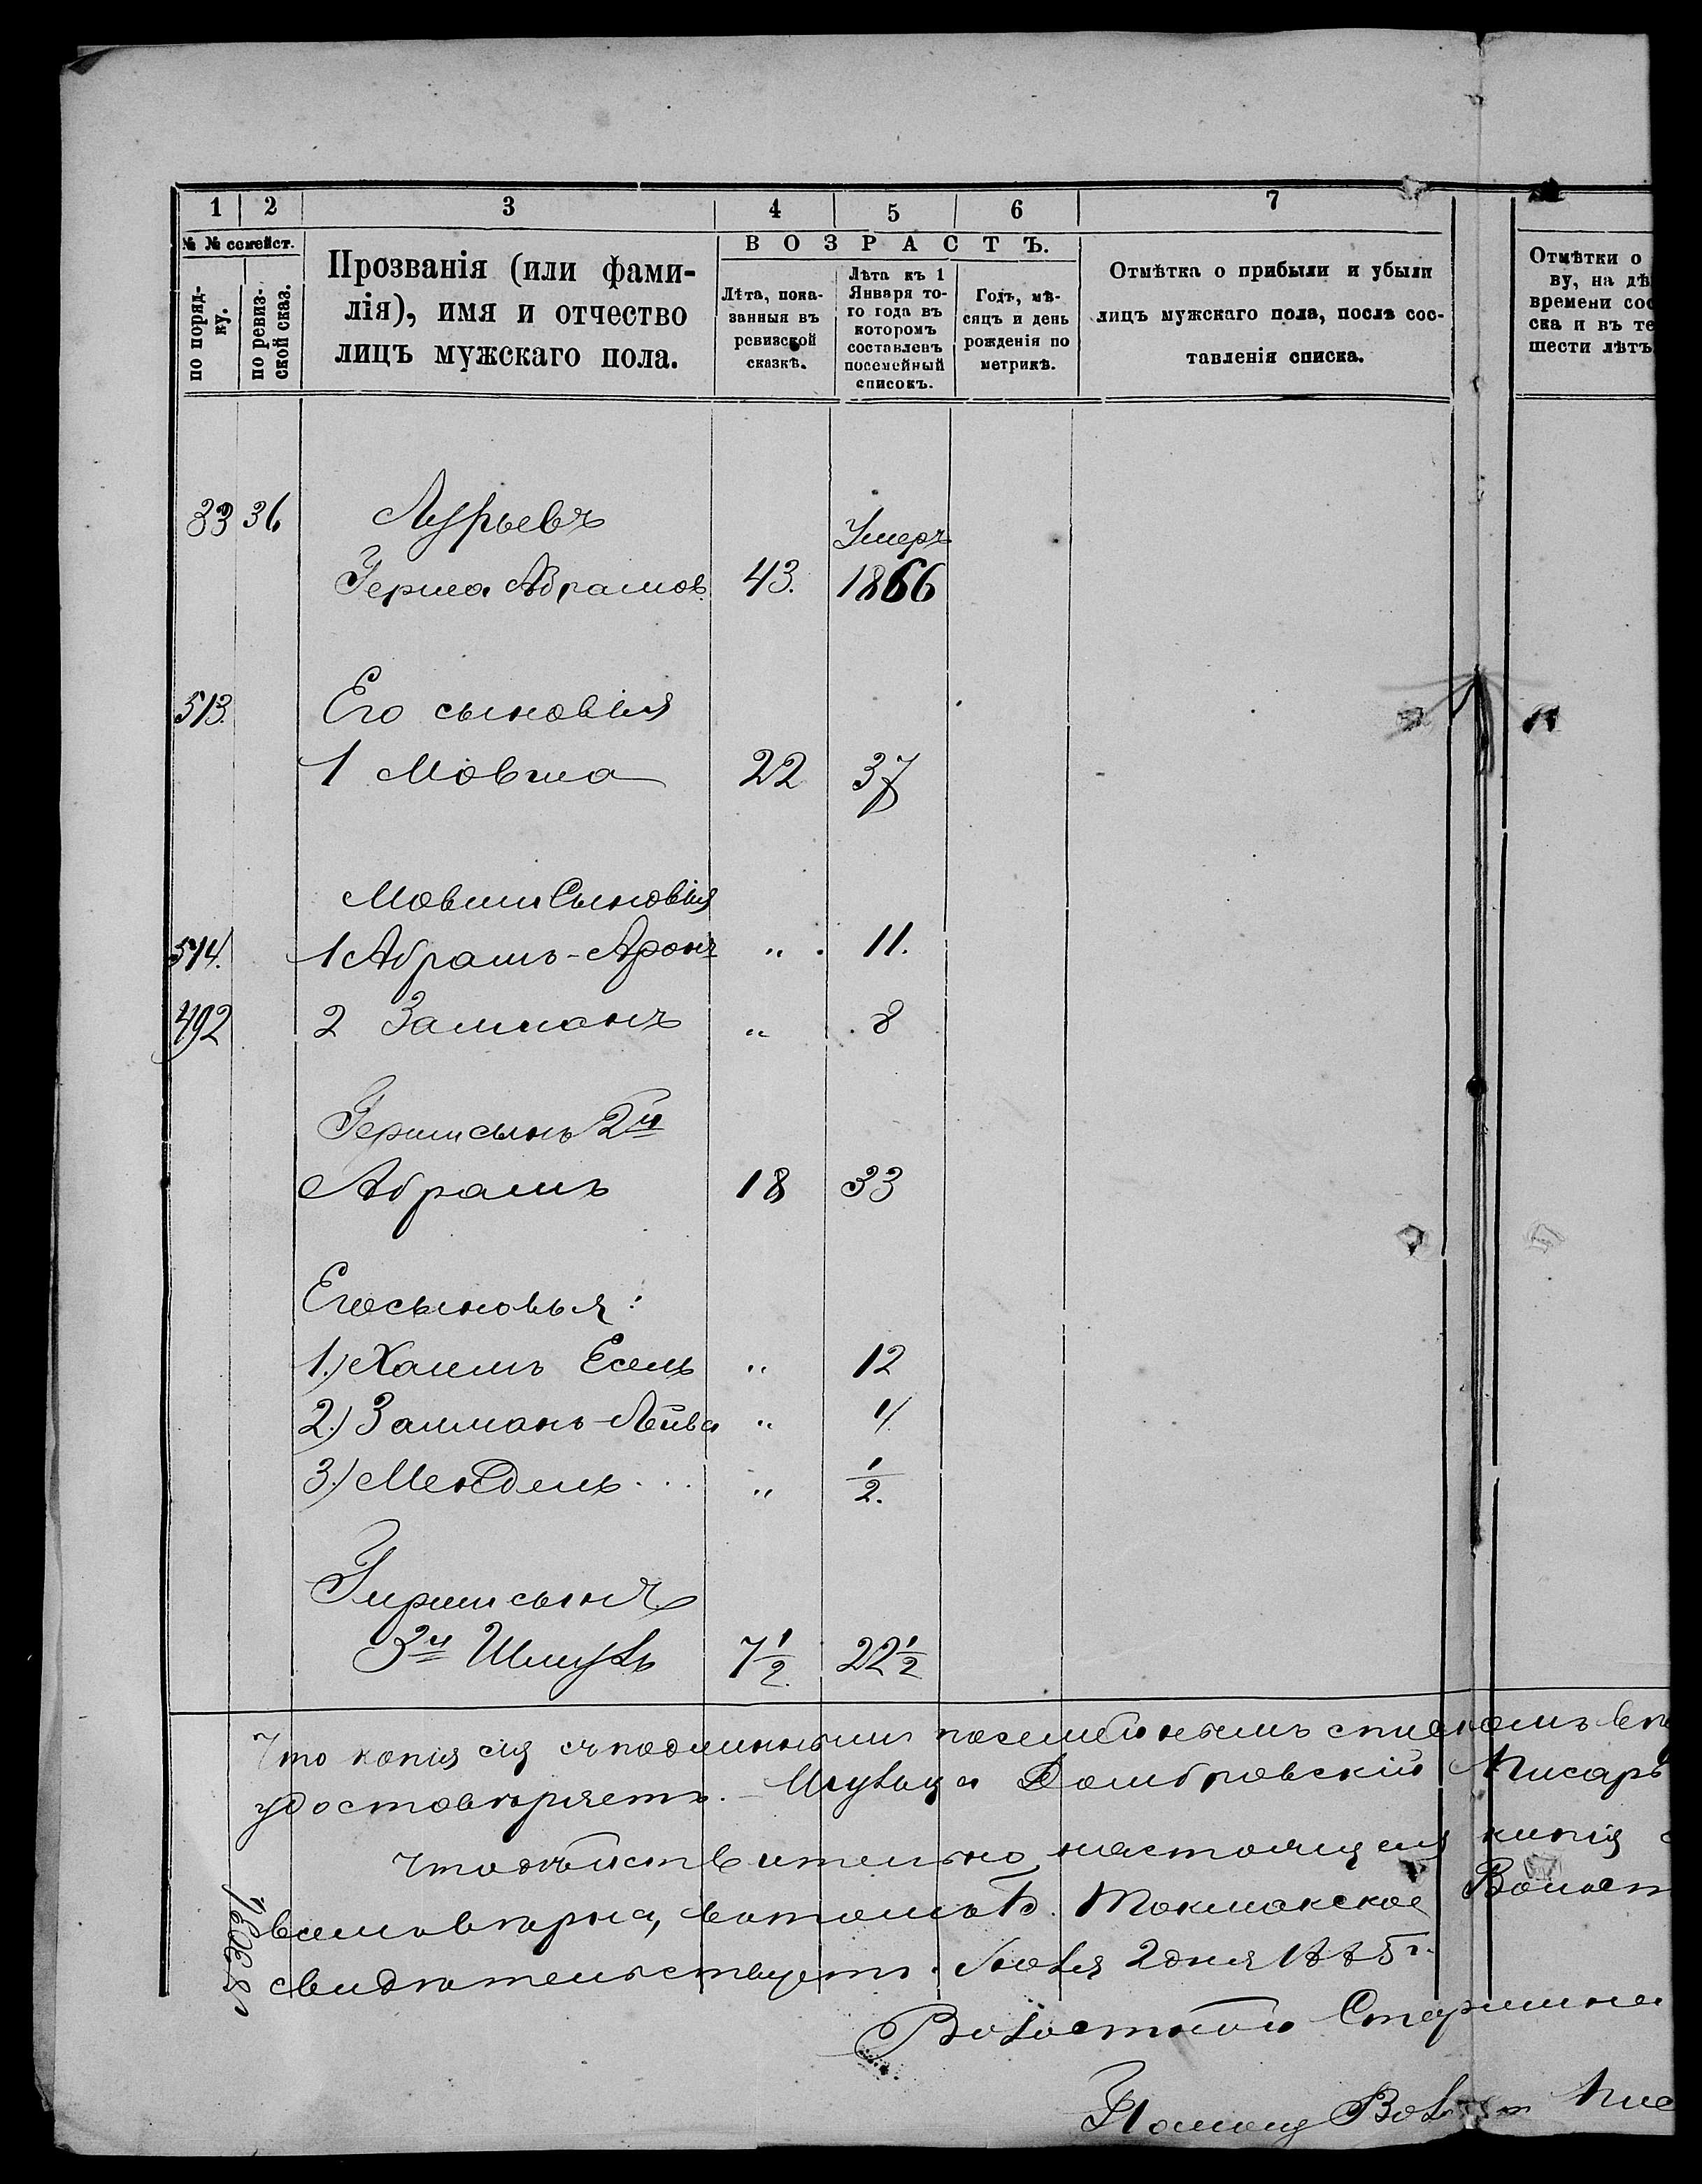 1 2 3 4 5 6 7
№ № семейст.
по поряд-
ку.
по ревиз-
ской сказ.
Прозванія (или фами-
лія), имя и отчество
лицъ мужскаго пола.
ВОЗРАСТЪ.
Лѣта, пока-
занныя въ
ревизской
сказкѣ.
Лѣта къ 1
Января то-
го года въ
которомъ
составленъ
посемейный
списокъ.
Годъ, мѣ-
сяцъ и день
рожденія по
метрикѣ.
Отмѣтка о прибыли и убыли
лицъ мужскаго пола, послѣ сос-
тавленія списка.
Отмѣтки о
ву, на дѣ
времени сос
ска и въ те
шести лѣтъ
33 36 Лурьевъ
Умеръ
Герша Абрамов. 43. 1866
513. Его сыновія
1 Мовша 22 37
Мовши Сыновія
514. 1 Абрамъ-Аронъ " 11.
492 2 Залманъ " 8
Герши сынъ 2й
Абрамъ 18 33
Его сыновья:
1.) Хаимъ Есель " 12
2.) Залманъ-Лейба " 4
3.) Мендель... " 1/2.
Гирши сынъ
3й Шмуль 7 1/2 22 1/2
Что копія сія съ подлиннымъ посемейнымъ спискомъ
удостовѣряетъ. Домбровскій Писарь
Что дѣйствительно настоящая копія
вѣрна, въ томъ Б. Токмакское Волост
свидѣтельствуетъ. Іюля 2 дня 1885 г.
Волостной Старшина
Помощ Вол Пис